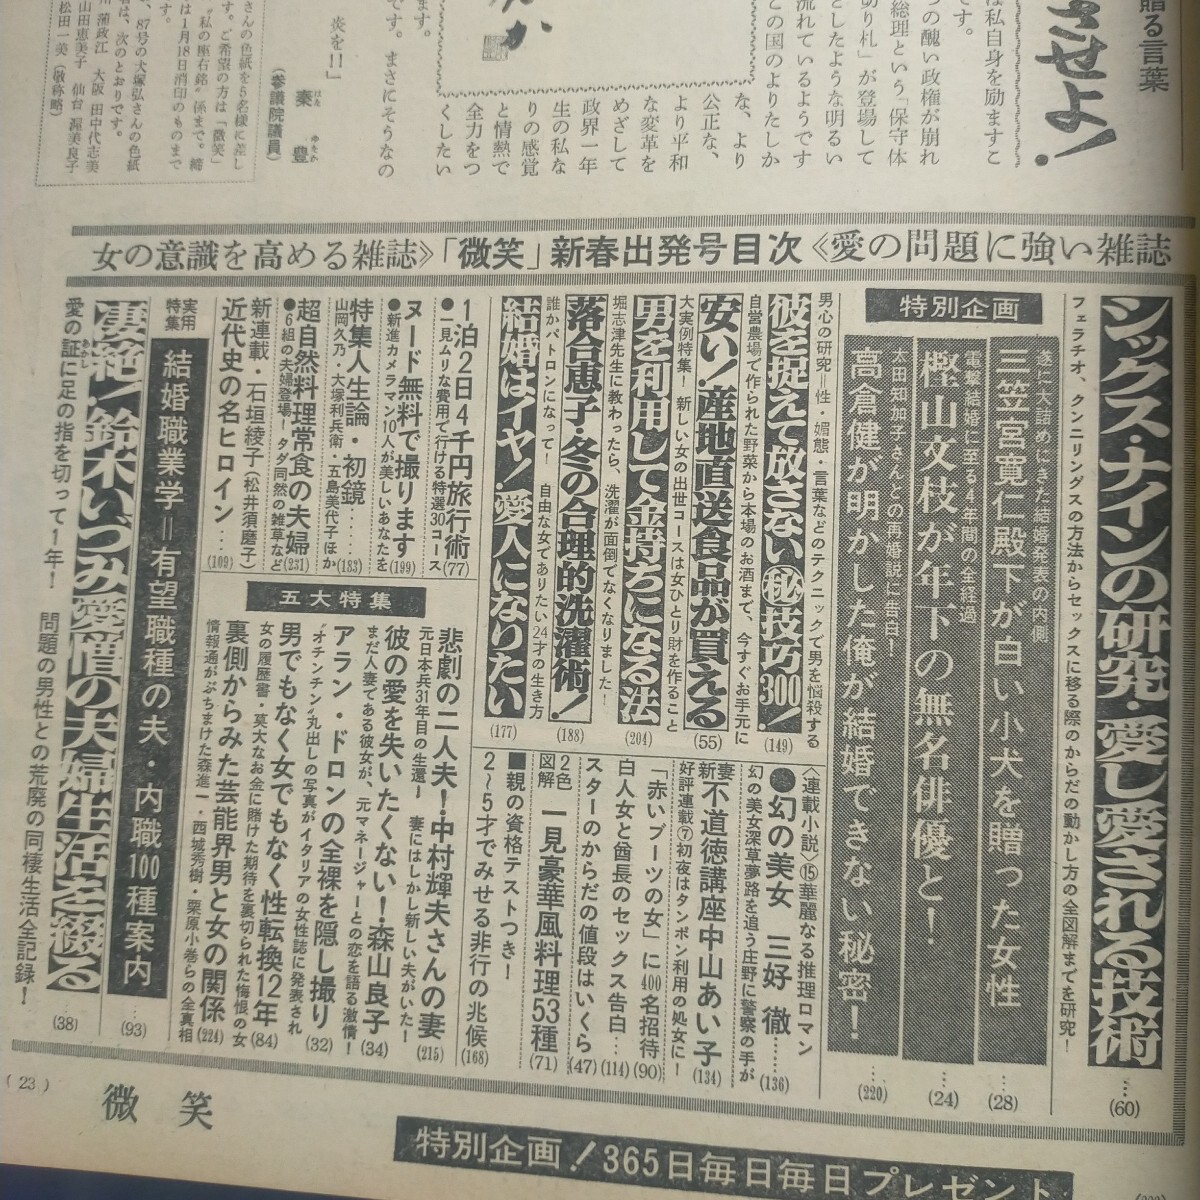 贈る言葉
させよ!
は私自身を励ますこ
です。
の醜い政権が崩れ
総理という「保守体
切り札」が登場して
としたような明るい
流れているようです
この国のよりたしか
な、より
公正な、
より平和
な変革を
めざして
政界一年
生の私な
りの感覚
と情熱で
全力をつ
くしたい
ます。
です。まさにそうなの
炎を!!」
秦 豊
はた ゆたか
(参議院議員)
さんの色紙を5名様に差し
す。ご希望の方は「微笑」
“私の座右銘”係まで。締
は1月18日消印のものまで
87号の犬塚弘さんの色紙
者は、次のとおりです。
川蒲政江 大阪 田中代志美
山田恵美子 仙台 渥美良子
松田一美(敬称略)
女の意識を高める雑誌》「微笑」新春出発号目次《愛の問題に強い雑誌
シックス・ナインの研究・愛し愛される技術…(60)
フェラチオ、クンニリングスの方法からセックスに移る際のからだの動かし方の全図解までを研究!
特別企画
遂に大詰めにきた結婚発表の内側
三笠宮寛仁殿下が白い小犬を贈った女性…(28)
電撃結婚に至る4年間の全経過
樫山文枝が年下の無名俳優と!…(24)
太田知加子さんとの再婚説に告白!
高倉健が明かした俺が結婚できない秘密!…(220)
男心の研究=性・媚態・言葉などのテクニックで男を悩殺する
彼を捉えて放さない㊙技巧300!(149)
自営農場で作られた野菜から本場のお酒まで、今すぐお手元に
安い!産地直送食品が買える(55)
大実例特集!新しい女の出世コースは女ひとり財を作ること
男を利用して金持ちになる法(204)
堀志津先生に教わったら、洗濯が面倒でなくなりました!
落合恵子・冬の合理的洗濯術!(188)
誰かパトロンになって! 自由な女でありたい24才の生き方
結婚はイヤ!愛人になりたい(177)
●1泊2日4千円旅行術
一見ムリな費用で行ける特選30コース(77)
ヌード無料で撮ります
●新進カメラマン10人が美しいあなたを(199)
特集人生論・初鏡……
山岡久乃・大塚利兵衛・五島美代子ほか(183)
超自然料理常食の夫婦
●6組の夫婦登場!タダ同然の雑草など(231)
新連載・石垣綾子(松井須磨子)
近代史の名ヒロイン…(109)
〈連載小説〉⑮華麗なる推理ロマン
●幻の美女 三好 徹……(136)
幻の美女深草夢路を追う庄野に警察の手が
新妻不道徳講座中山あい子(134)
好評連載⑦初夜はタンポン利用の処女に!
「赤いブーツの女」に400名招待(90)
白人女と酋長のセックス告白…(114)
スターのからだの値段はいくら(47)
2色図解 一見豪華風料理53種(71)
■親の資格テストつき!
2〜5才でみせる非行の兆候(168)
五大特集
悲劇の二人夫!中村輝夫さんの妻(215)
元日本兵31年目の生還― 妻にはしかし新しい夫がいた―
彼の愛を失いたくない!森山良子(34)
まだ人妻である彼女が、元マネージャーとの恋を語る激情!
アラン・ドロンの全裸を隠し撮り(32)
“オチンチン”丸出しの写真がイタリアの女性誌に発表され
男でもなく女でもなく性転換12年(84)
女の履歴書・莫大なお金に賭けた期待を裏切られた悔恨の女
裏側からみた芸能界男と女の関係(224)
情報通がぶちまけた森進一・西城秀樹・栗原小巻らの全真相
実用特集 結婚職業学=有望職種の夫・内職100種案内…(93)
凄絶!鈴木いづみ愛憎の夫婦生活を綴る(38)
愛の証に足の指を切って1年! 問題の男性との荒廃の同棲生活全記録!
(23) 微笑
特別企画!365日毎日毎日プレゼント